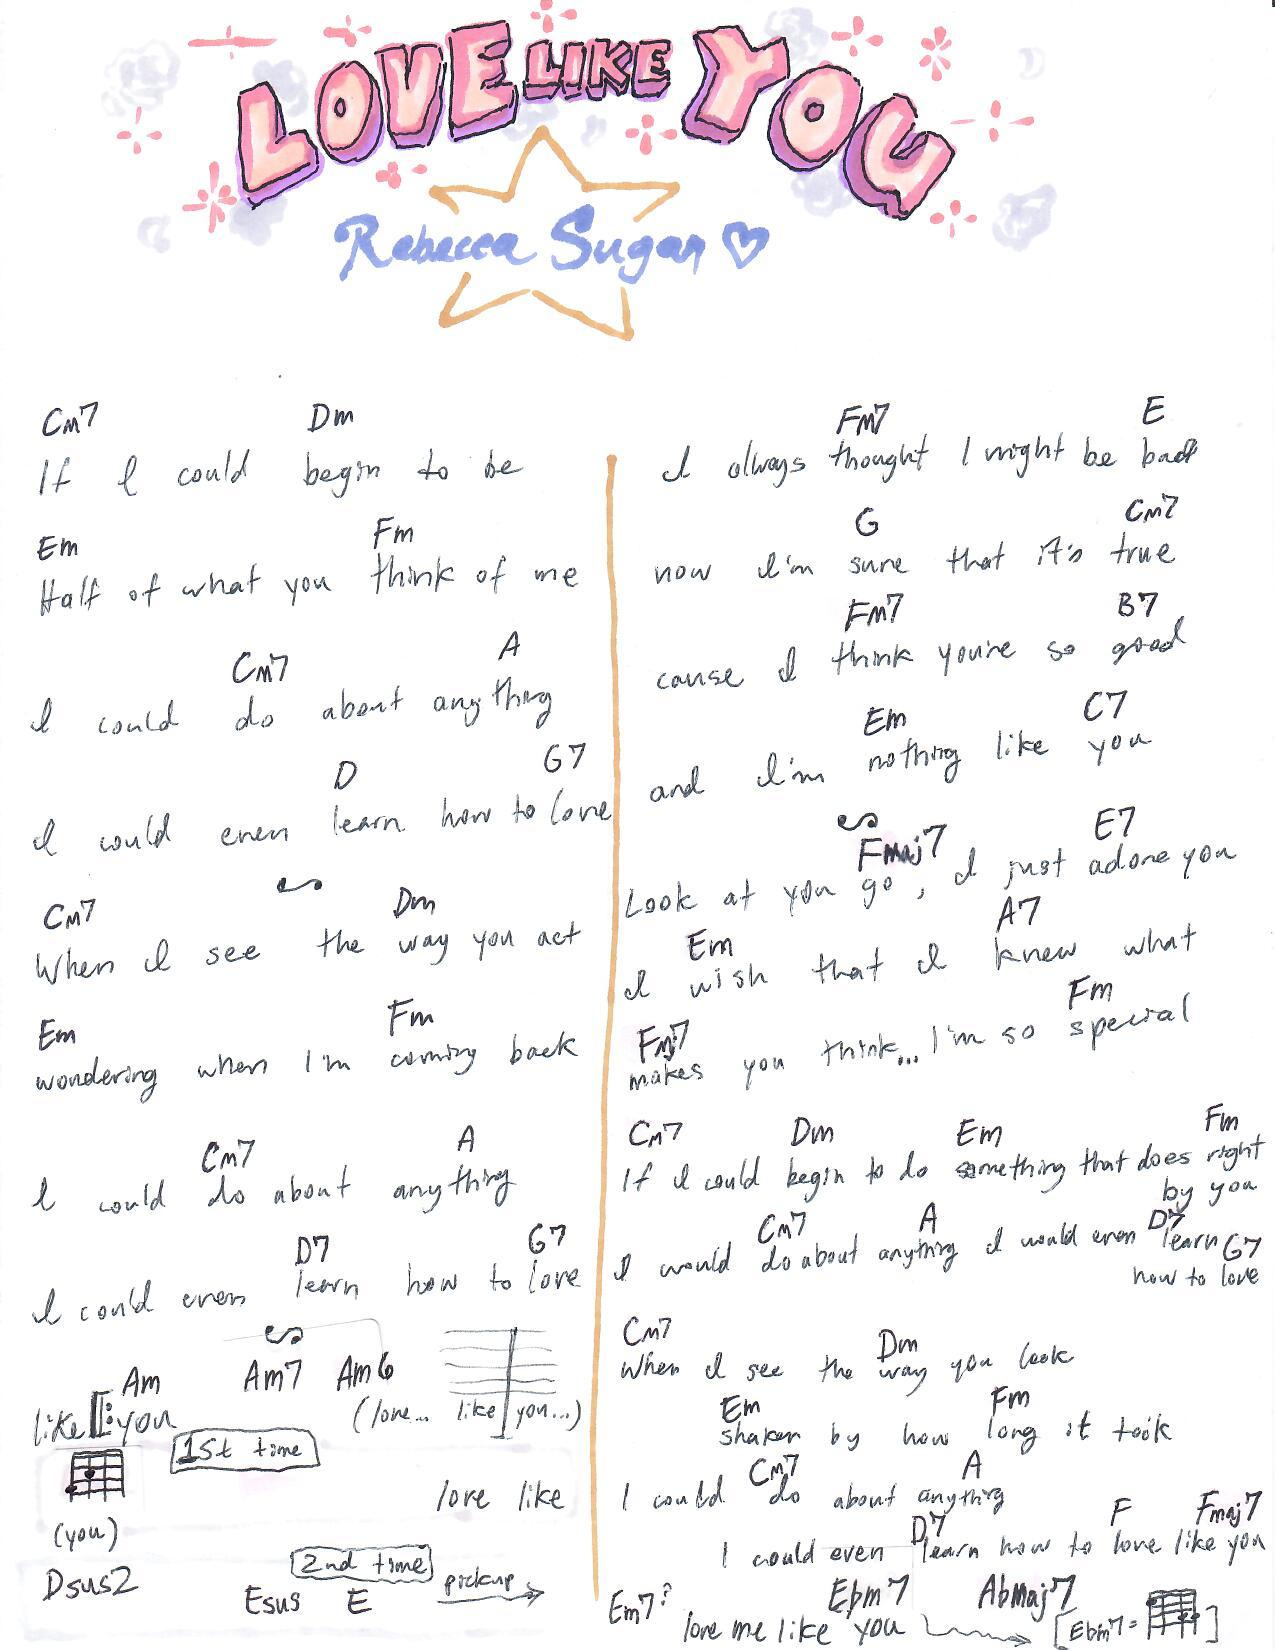 LOVE LIKE YOU
Rebecca Sugar ♡
Cm7 Dm
If I could begin to be
Em Fm
Half of what you think of me
Cm7 A
I could do about anything
D G7
I could even learn how to love
Cm7 Dm
When I see the way you act
Em Fm
wondering when I'm coming back
Cm7 A
I could do about anything
D7 G7
I could even learn how to love
Am Am7 Am6
like you (love... like you...)
1st time
love like
(you)
2nd time
Dsus2 Esus E pickup
Fm7 E
I always thought I might be bad
G Cm7
now I'm sure that it's true
Fm7 B7
cause I think you're so good
Em C7
and I'm nothing like you
Fmaj7 E7
Look at you go, I just adore you
Em A7
I wish that I knew what
Fmj7 Fm
makes you think... I'm so special
Cm7 Dm Em Fm
If I could begin to do something that does right
by you
Cm7 A D7
I would do about anything I would even learn
G7
how to love
Cm7 Dm
When I see the way you look
Em Fm
shaken by how long it took
Cm7 A
I could do about anything
D7 F Fmaj7
I could even learn how to love like you
Em7? Ebm7 AbMaj7
love me like you [Ebm7 = ]